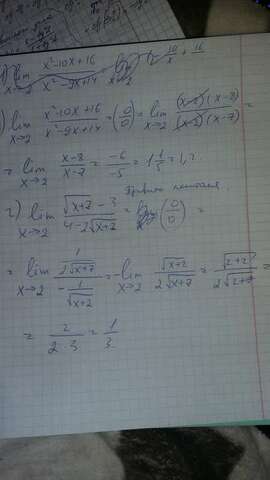 lim x→2 x²-10x+16 / x²-9x+14 = lim x→2 10/x + 16
lim x→2 x²-10x+16 / x²-9x+14 = (0/0) = lim x→2 (x-2)(x-8) / (x-2)(x-7) =
= lim x→2 x-8 / x-7 = -6 / -5 = 1 1/5 = 1,2
правило Лопиталя
2) lim x→2 √x+7 - 3 / 4-2√x+2 = (0/0) =
= lim x→2 1/2√x+7 / -1/√x+2 = -lim x→2 √x+2 / 2√x+7 = √2+2 / 2√2+7 =
= 2 / 2·3 = 1/3